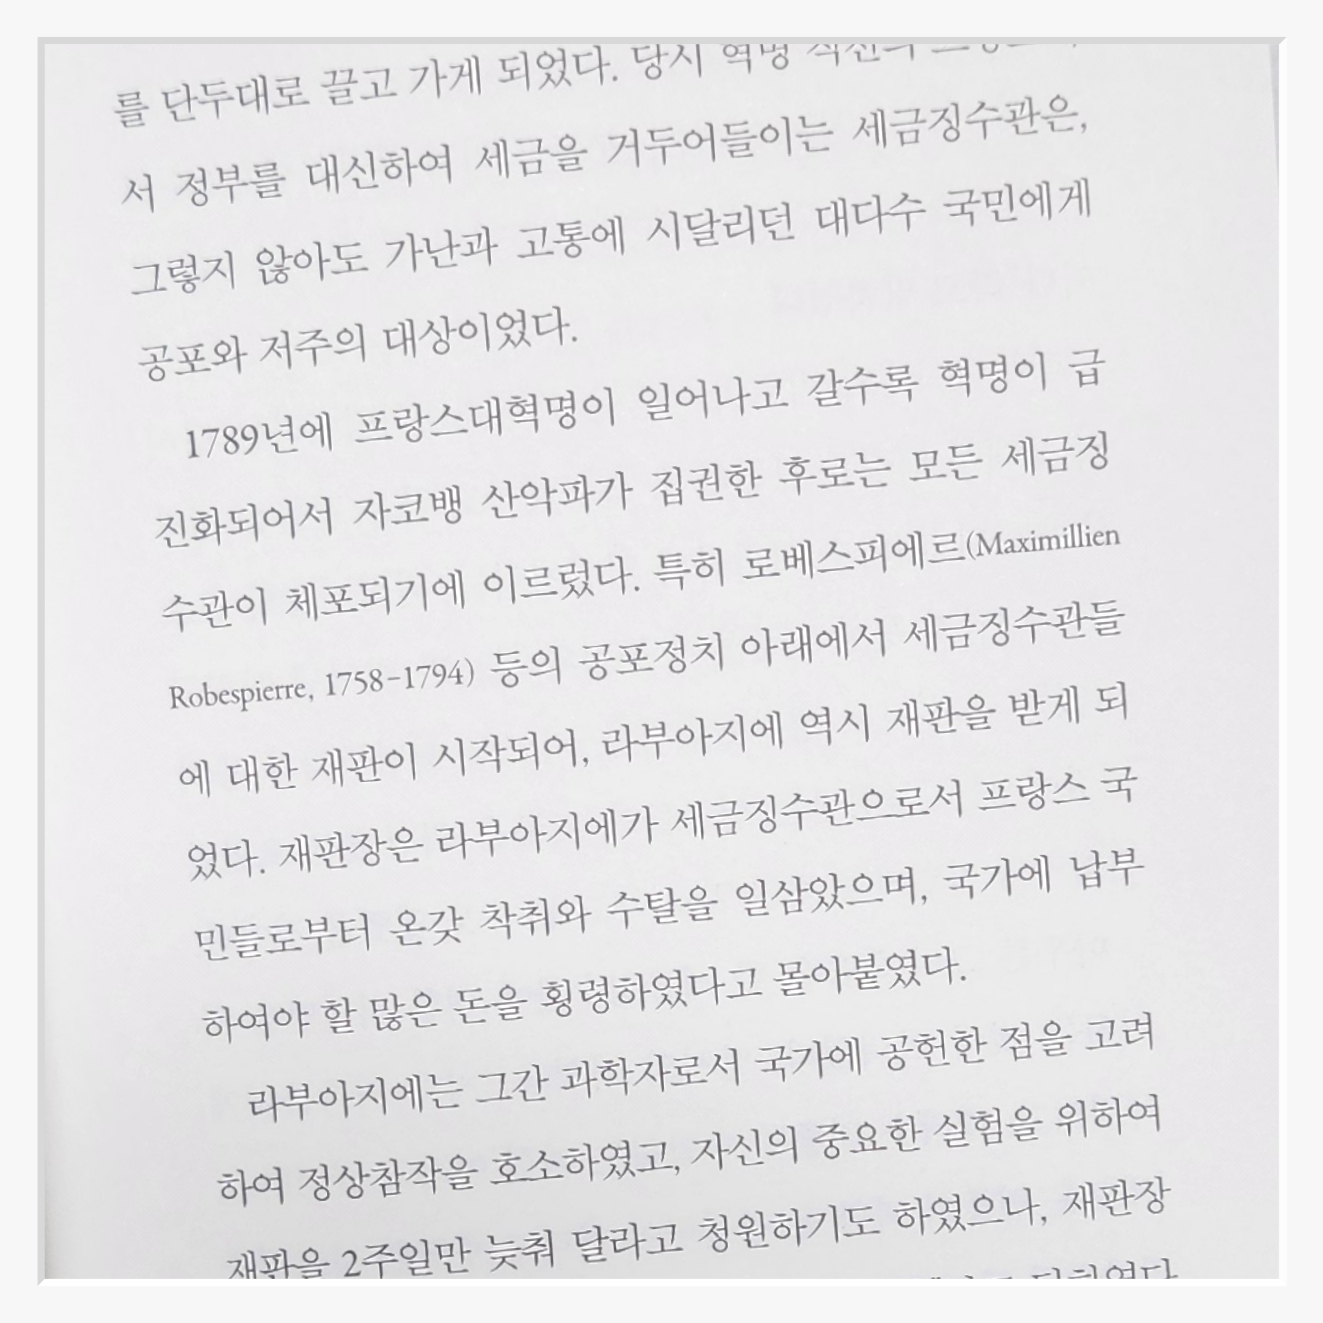 를 단두대로 끌고 가게 되었다. 당시 혁명
서 정부를 대신하여 세금을 거두어들이는 세금징수관은,
그렇지 않아도 가난과 고통에 시달리던 대다수 국민에게
공포와 저주의 대상이었다.
1789년에 프랑스대혁명이 일어나고 갈수록 혁명이 급
진화되어서 자코뱅 산악파가 집권한 후로는 모든 세금징
수관이 체포되기에 이르렀다. 특히 로베스피에르(Maximillien
Robespierre, 1758-1794) 등의 공포정치 아래에서 세금징수관들
에 대한 재판이 시작되어, 라부아지에 역시 재판을 받게 되
었다. 재판장은 라부아지에가 세금징수관으로서 프랑스 국
민들로부터 온갖 착취와 수탈을 일삼았으며, 국가에 납부
하여야 할 많은 돈을 횡령하였다고 몰아붙였다.
라부아지에는 그간 과학자로서 국가에 공헌한 점을 고려
하여 정상참작을 호소하였고, 자신의 중요한 실험을 위하여
재판을 2주일만 늦춰 달라고 청원하기도 하였으나, 재판장